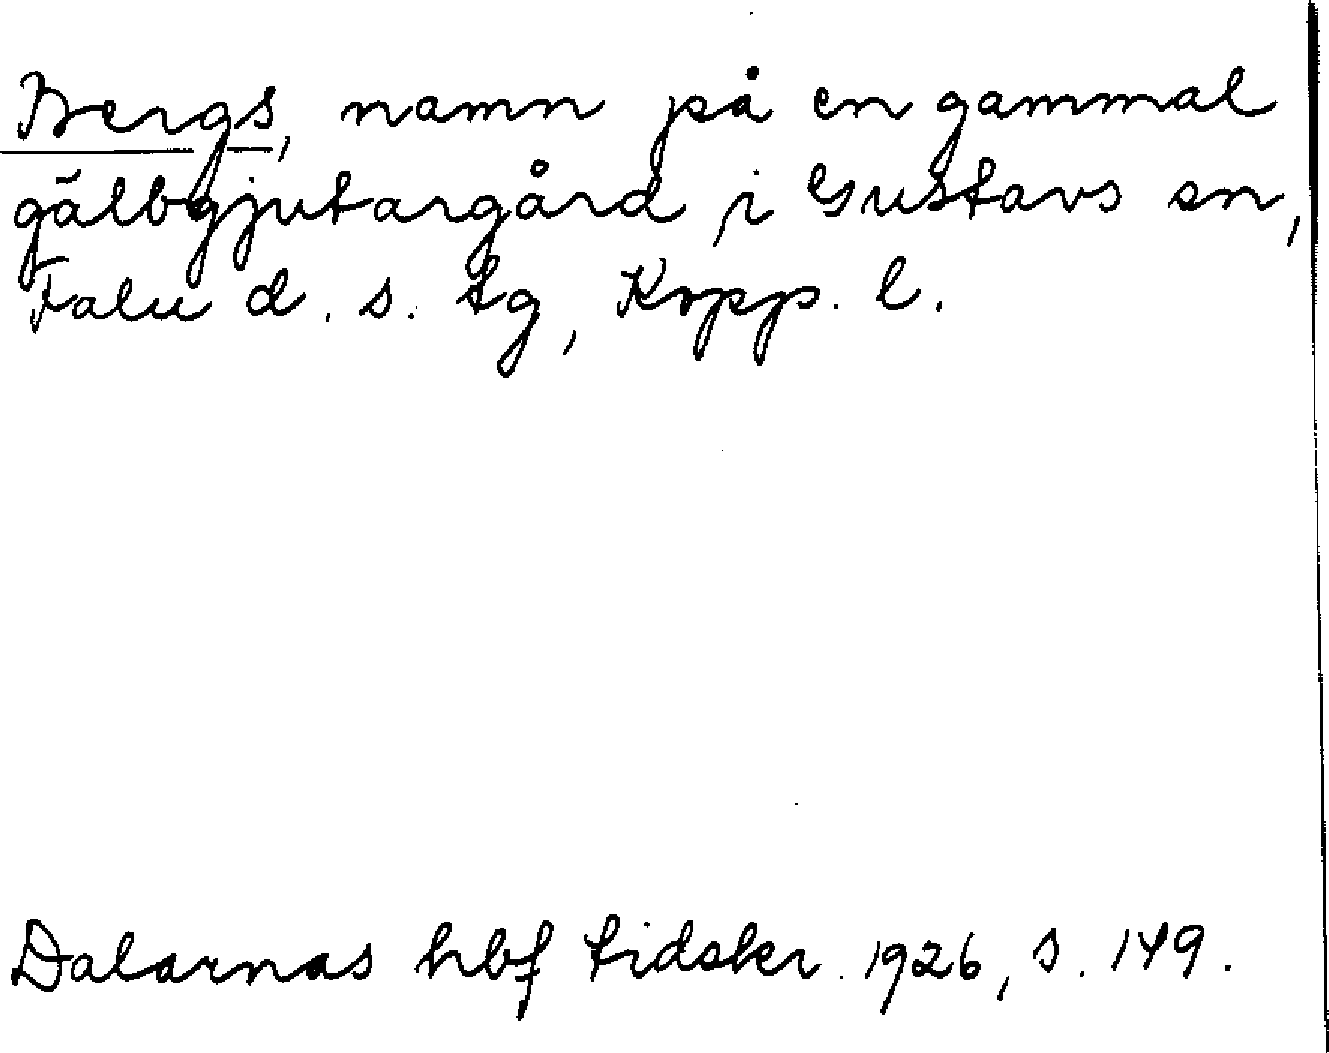 Bergs, namn på en gammal
gälbgjutargård i Gustavs sn,
Falu d. s. tg, Kopp. l.
Dalarnas hbf tidskr. 1926, s. 149.